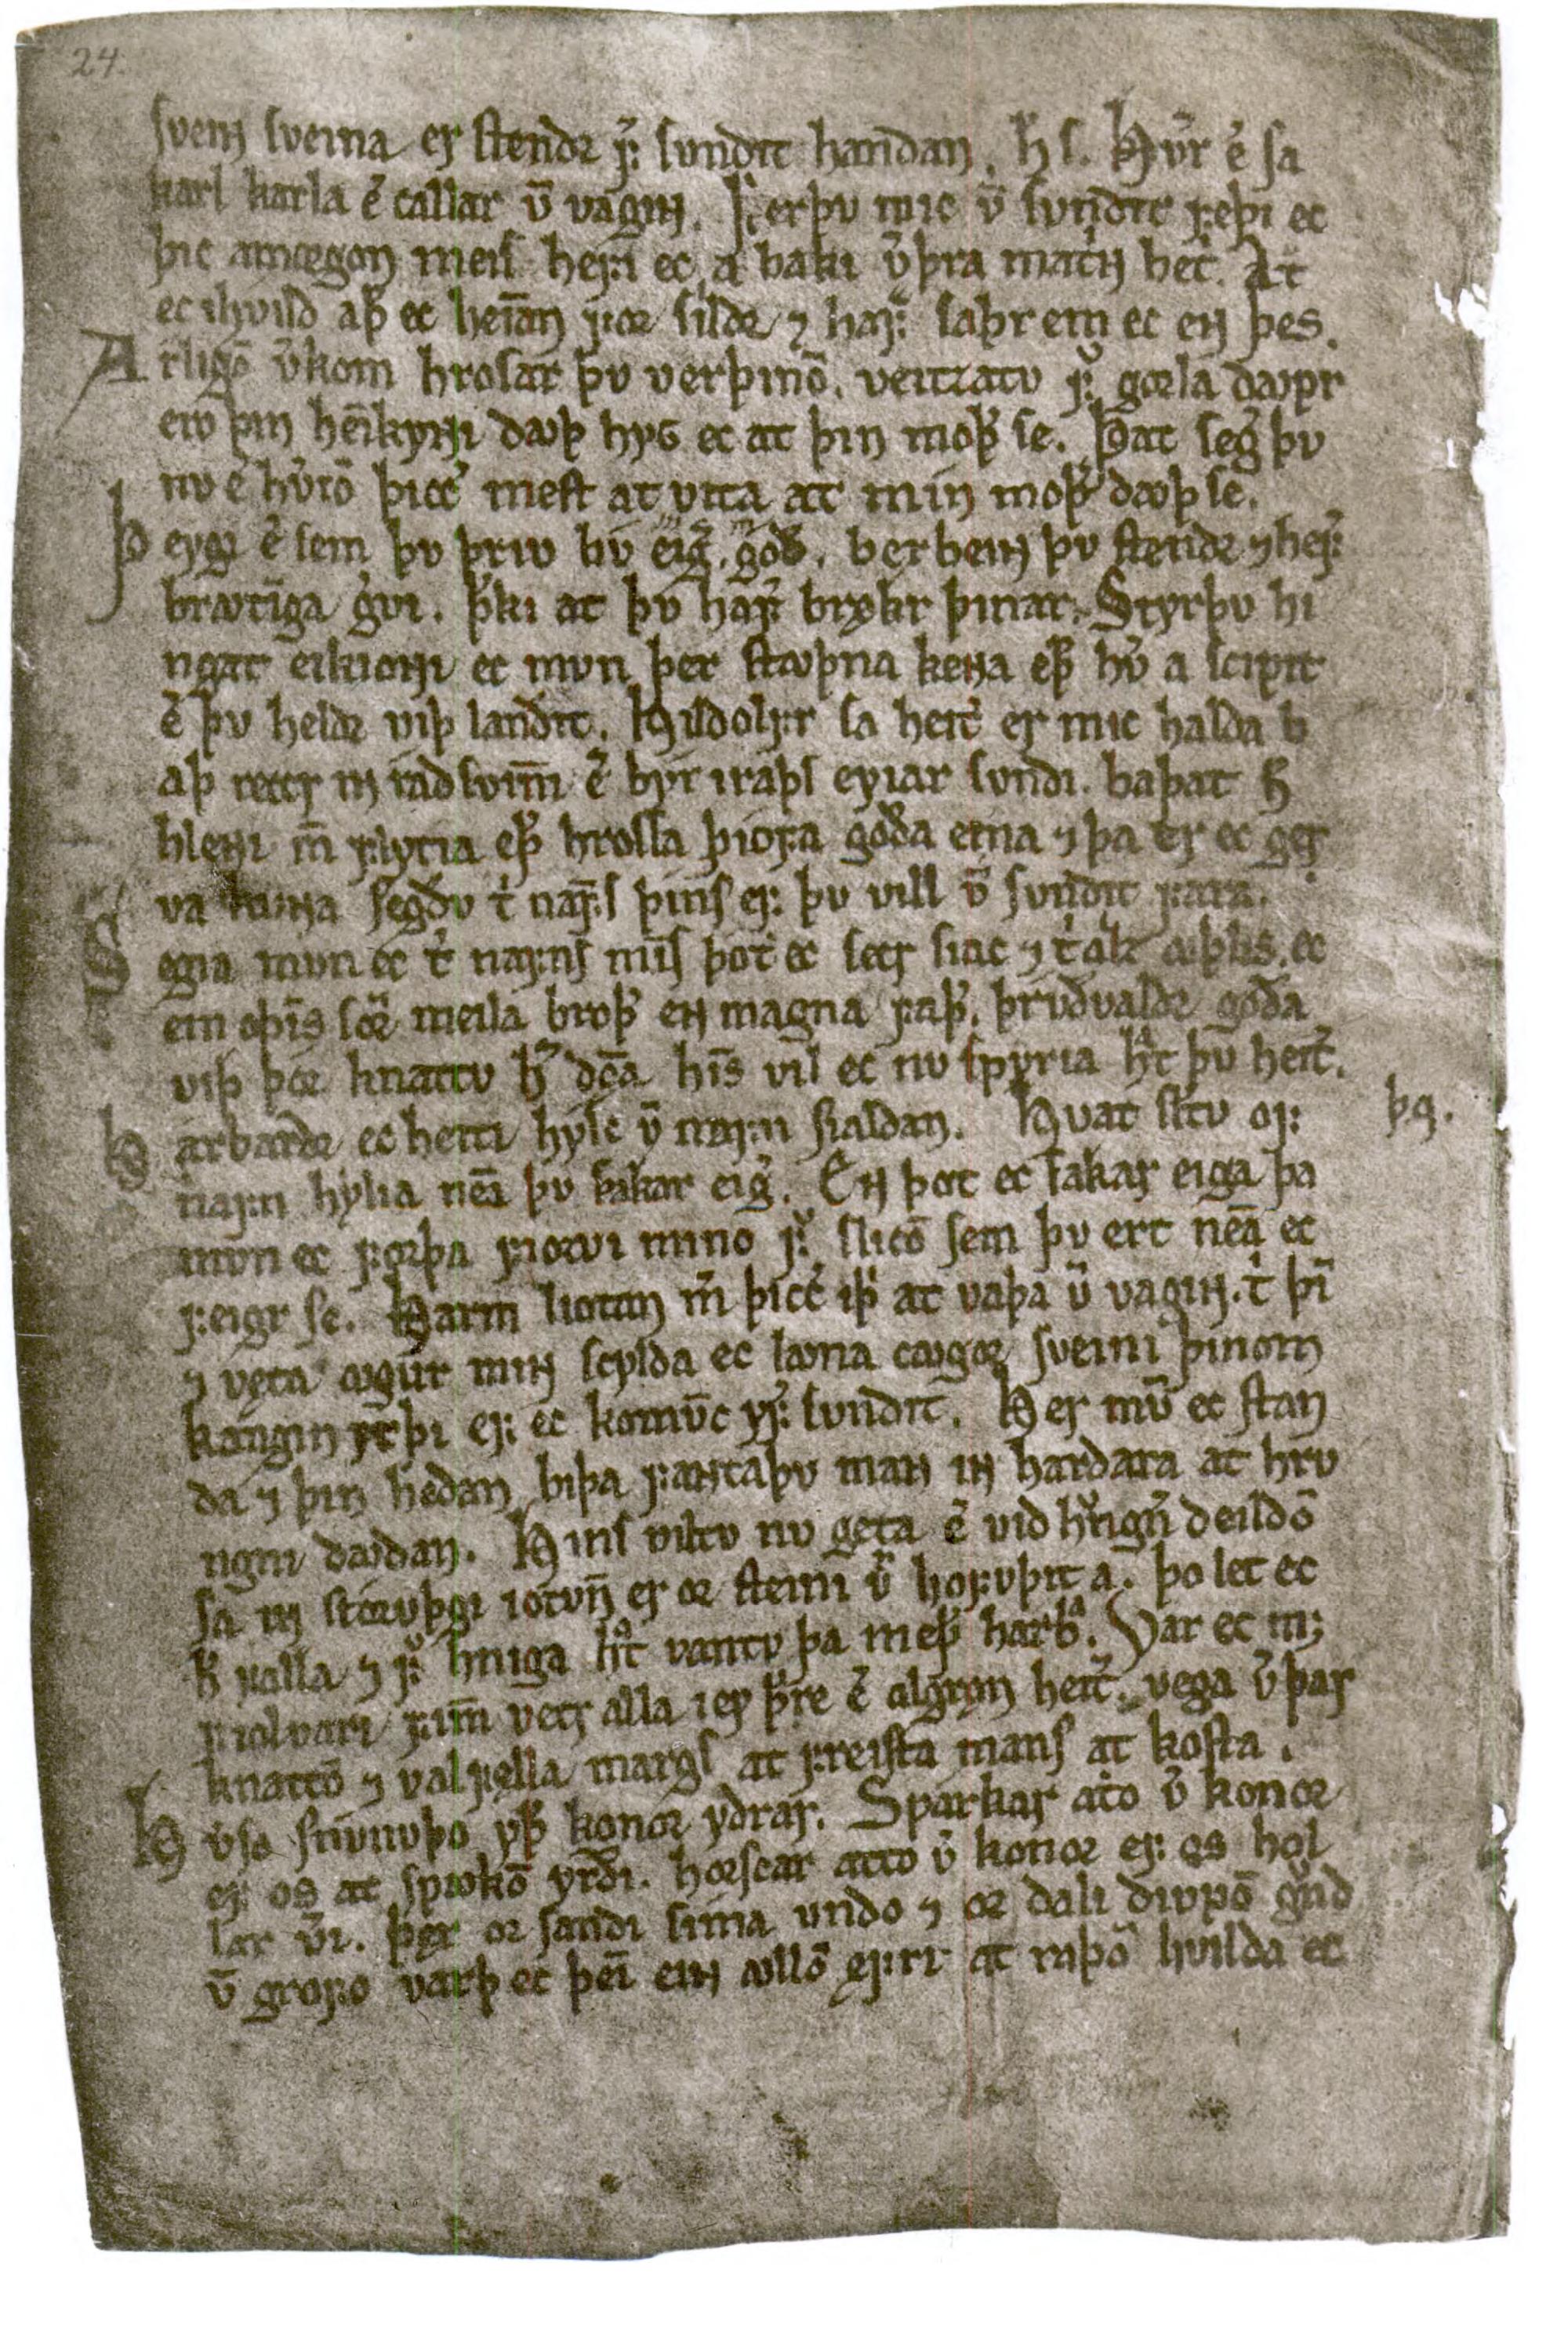 24.
ſveiɴ ſveina er ſtendꝛ ꝼ͛ ſundit handan. h̅ ſ. Hv͛r e̅ ſa
karl karla e̅ callar v̅ vagiɴ. Ferþv mic v̅ ſundit ꝼeþi ec
þic amorgon meiſ hefi ec a baki v͛þra matriɴ bet͛. At
ec ihvild aþ͛ ec heiman ꝼoꝛ ſildꝛ ⁊ hafꝛa ſaþr em ec eɴ þeſ.
Arligo̅ v͛kom hroſar þv verþino̅. veitzatv ꝼ͛ goꝛla dꜹpr
ero þin heimkyɴi dꜹþ hyg ec at þin moþ͛ ſe. Þat ſeg͛ þv
nv e̅ hv͛io̅ þicc͛ meſt at vita at min moþ͛ dꜹþ ſe.
Þeygi e̅ ſem þv þriv bv eig͛ goð. berbeiɴ þv ſtendꝛ ⁊ hef͛
brꜹtinga g͛vi. þ̅ki at þv haf͛ brøkr þinar. Styrþv hi
ngat eikioɴi ec mvn þer ſtꜹþna keɴa eþ͛ hv͛ a ſcipit
e̅ þv heldꝛ viþ landit. Hildolfr ſa heit͛ er mic halda b
aþ reccr iɴ radſvin̅i e̅ byr iraþſ eyiar ſundi. baþat h̅
hleɴi m̅ flytia eþ͛ hroſſa þiofa goða eina ⁊ þa er ec ger
va kuɴa ſegðv t͛ nafnſ þinſ ef þv vill v̅ ſundit fara.
Segia mvn ec t͛ nafnſ minſ þot ec ſecr ſiac ⁊ t͛ allz øþliſ. ec
em oþinſ ſonr meila broþ͛ eɴ magna faþ͛. þrvðvaldꝛ goða
viþ þoꝛ knattv h͛ dœma hinſ vil ec nv ſpyria hvat þv heit͛.
Harbardꝛ ec heiti hylc v̅ nafn ſialdan. Hvat ſcltv of þq.
nafn hylia nema þv ſakar eig͛. En þot ec ſakar eiga þa
mvn ec foꝛþa fioꝛvi mino ꝼ͛ ſlico̅ ſem þv ert nema ec
feigr ſe. Harm liotan m̅ þicc͛ iþ͛ at vaþa v̅ vagiɴ. t͛ þi̅
⁊ vęta ꜹgur miɴ ſcylda ec lꜹna cꜹgoꝛ ſveini þinom
kanginyrþi ef ec komv̅c yf͛ ſundit. Her mv̅ ec ſtan
da ⁊ þin heðan biþa fantaþv maɴ iɴ hardara at hrv
ngni dꜹðan. Hinſ viltv nv geta e̅ við hrvngn͛ deildo̅
ſa iɴ ſtoꝛvþgi iotvn̅ er oꝛ ſteini v͛ hofvþit a. þo let ec
h̅ falla ⁊ ꝼ͛ hniga hvat vantv þa meþ͛ harb͛. Var ec m;
fiolvari fim̅ vetr alla iey þ͛re e̅ algrøn heit͛. vega v͛ þar
knatto̅ ⁊ valfella margſ at freiſta manſ at koſta.
Hv͛ſo ſnvnvþo yþ͛ konoꝛ ydrar. Sparkar ato̅ v͛ konoꝛ
ef oſ at ſpꜹko̅ yrði. hoꝛſcar atto v͛ konoꝛ ef oſ hol
lar v͛i. þęr oꝛ ſandi ſima undo ⁊ oꝛ dali divpo̅ g͛nd
v̅ grofo varþ ec þeim eiɴ ꜹllo̅ efri at raþo̅ hvilda ec